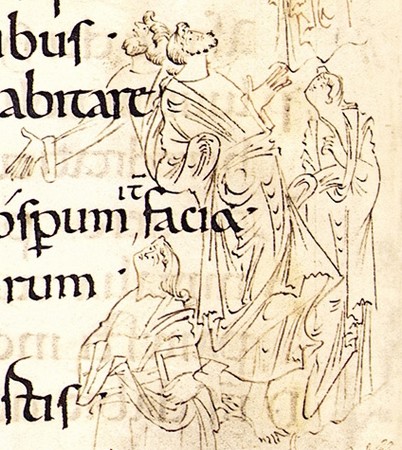 ibus ·
abitare
it
óspum facia ·
rum ·
stis